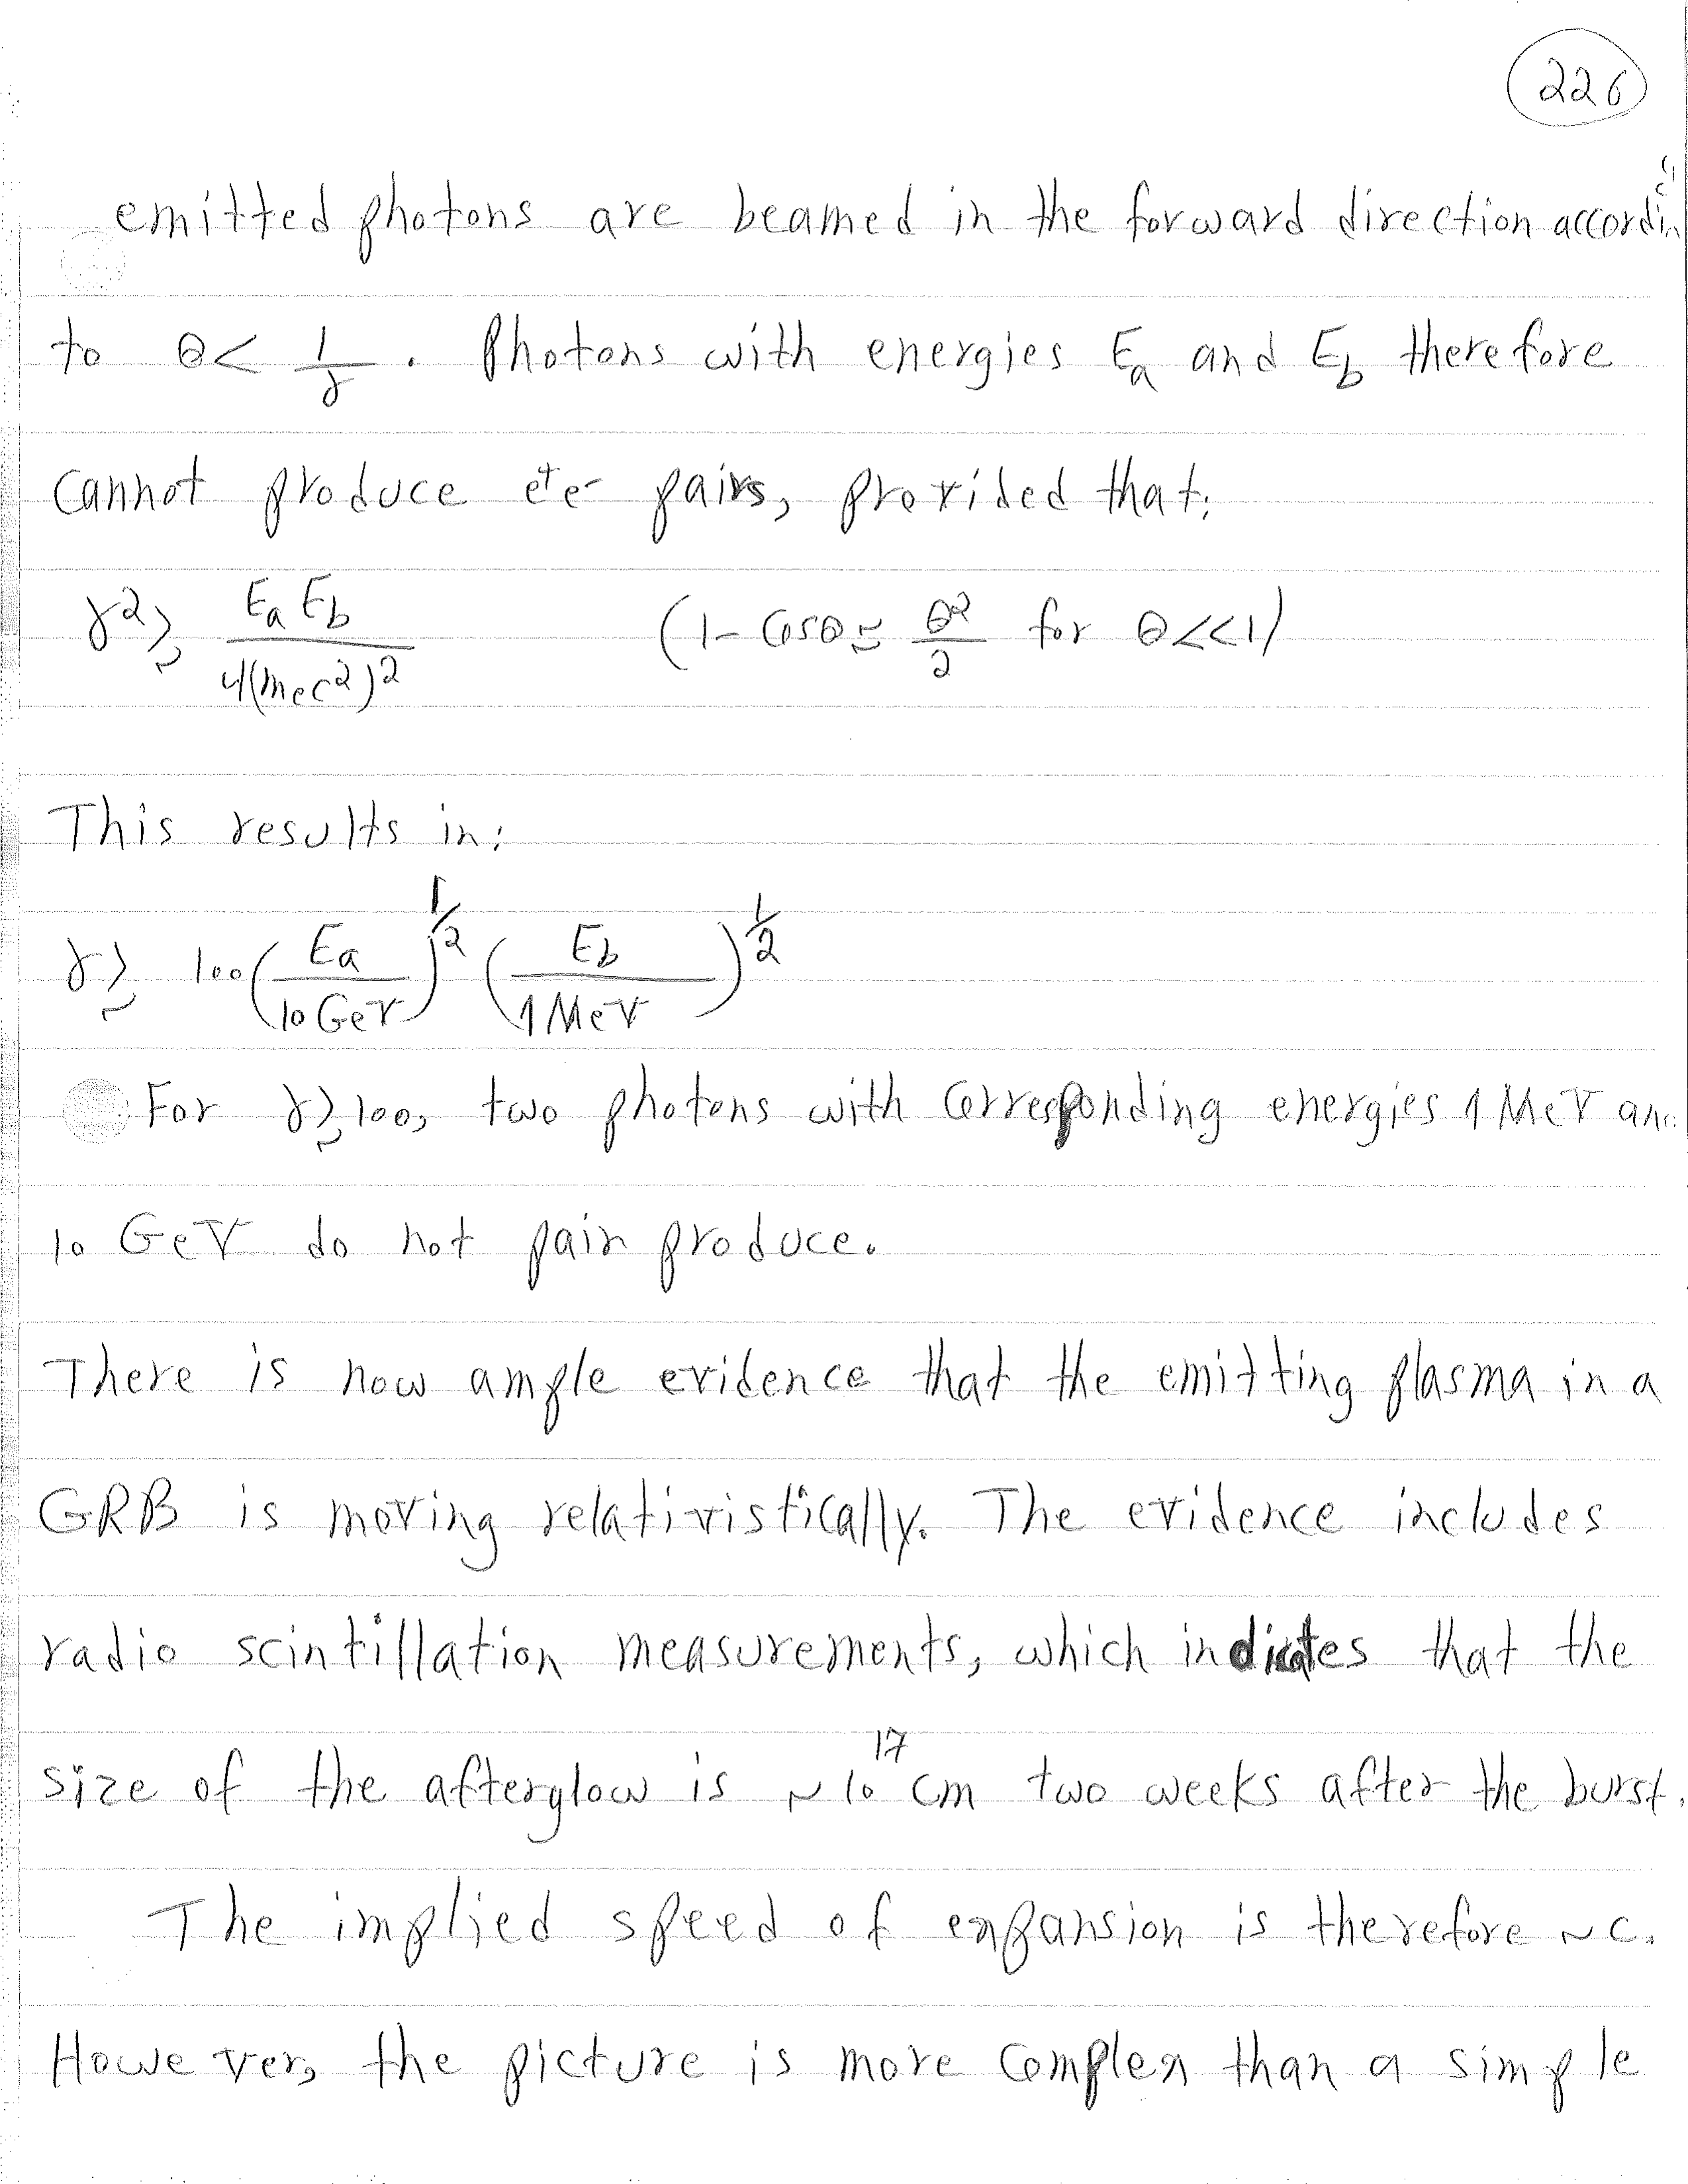 226
emitted photons are beamed in the forward direction accordi
to θ < 1/γ . Photons with energies E_a and E_b therefore
cannot produce e⁺e⁻ pairs, provided that:
γ² ≳ E_a E_b / 4(m_e c²)² (1 - Cosθ ≃ θ²/2 for θ<<1)
This results in:
γ ≳ 100 (E_a / 10 GeV)^1/2 (E_b / 1 MeV)^1/2
For γ ≳ 100, two photons with corresponding energies 1 MeV an
10 GeV do not pair produce.
There is now ample evidence that the emitting plasma in a
GRB is moving relativistically. The evidence includes
radio scintillation measurements, which indicates that the
size of the afterglow is ~10^17 cm two weeks after the burst.
The implied speed of expansion is therefore ~c.
However, the picture is more complex than a simple